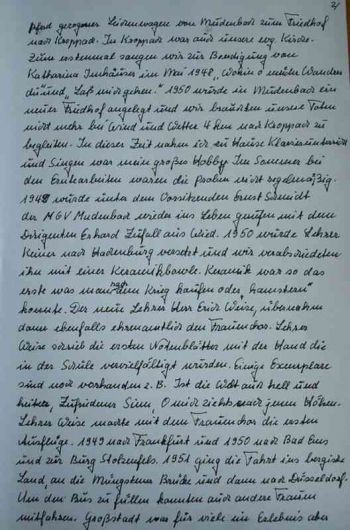 2
Pferd gezogener Leichenwagen von Mudenbach zum Friedhof
nach Kroppach. In Kroppach war auch unsere evg. Kirche.
Zum erstenmal sangen wir zur Beerdigung von
Katharina im Mai 1948, "Wohin o müder Wanderer
du" und "Laß mich gehen." 1950 wurde in Mudenbach ein
neuer Friedhof angelegt und wir brauchten unsere Toten
nicht mehr bei Wind und Wetter 4 km nach Kroppach zu
begleiten. In dieser Zeit nahm ich zu Hause Klavierunterricht
und Singen war mein großes Hobby. Im Sommer bei
den Erntearbeiten waren die Proben nicht regelmäßig.
1948 wurde unter dem Vorsitzenden Ernst Schmidt
der MGV Mudenbach wieder ins Leben gerufen mit dem
Dirigenten Erhard Zufall aus Wied. 1950 wurde Lehrer
Keiner nach Hachenburg versetzt und wir verabschiedeten
ihn mit einer Keramikbowle. Keramik war so das
erste was man nach dem Krieg kaufen oder "hamstern"
konnte. Der neue Lehrer Herr Erich Weise, übernahm
dann ebenfalls ehrenamtlich den Frauenchor. Lehrer
Weise schrieb die ersten Notenblätter mit der Hand die
in der Schule vervielfältigt wurden. Einige Exemplare
sind noch vorhanden z. B. Ist die Welt auch hell und
heiter, Zufriedener Sinn, O mich zieht's nach jenen Höhen.
Lehrer Weise machte mit dem Frauenchor die ersten
Ausflüge. 1949 nach Frankfurt und 1950 nach Bad Ems
und zur Burg Stolzenfels. 1951 ging die Fahrt ins bergische
Land, an die Müngstener Brücke und dann nach Düsseldorf.
Um den Bus zu füllen konnten auch andere Frauen
mitfahren. Großstadt war für viele ein Erlebnis aber